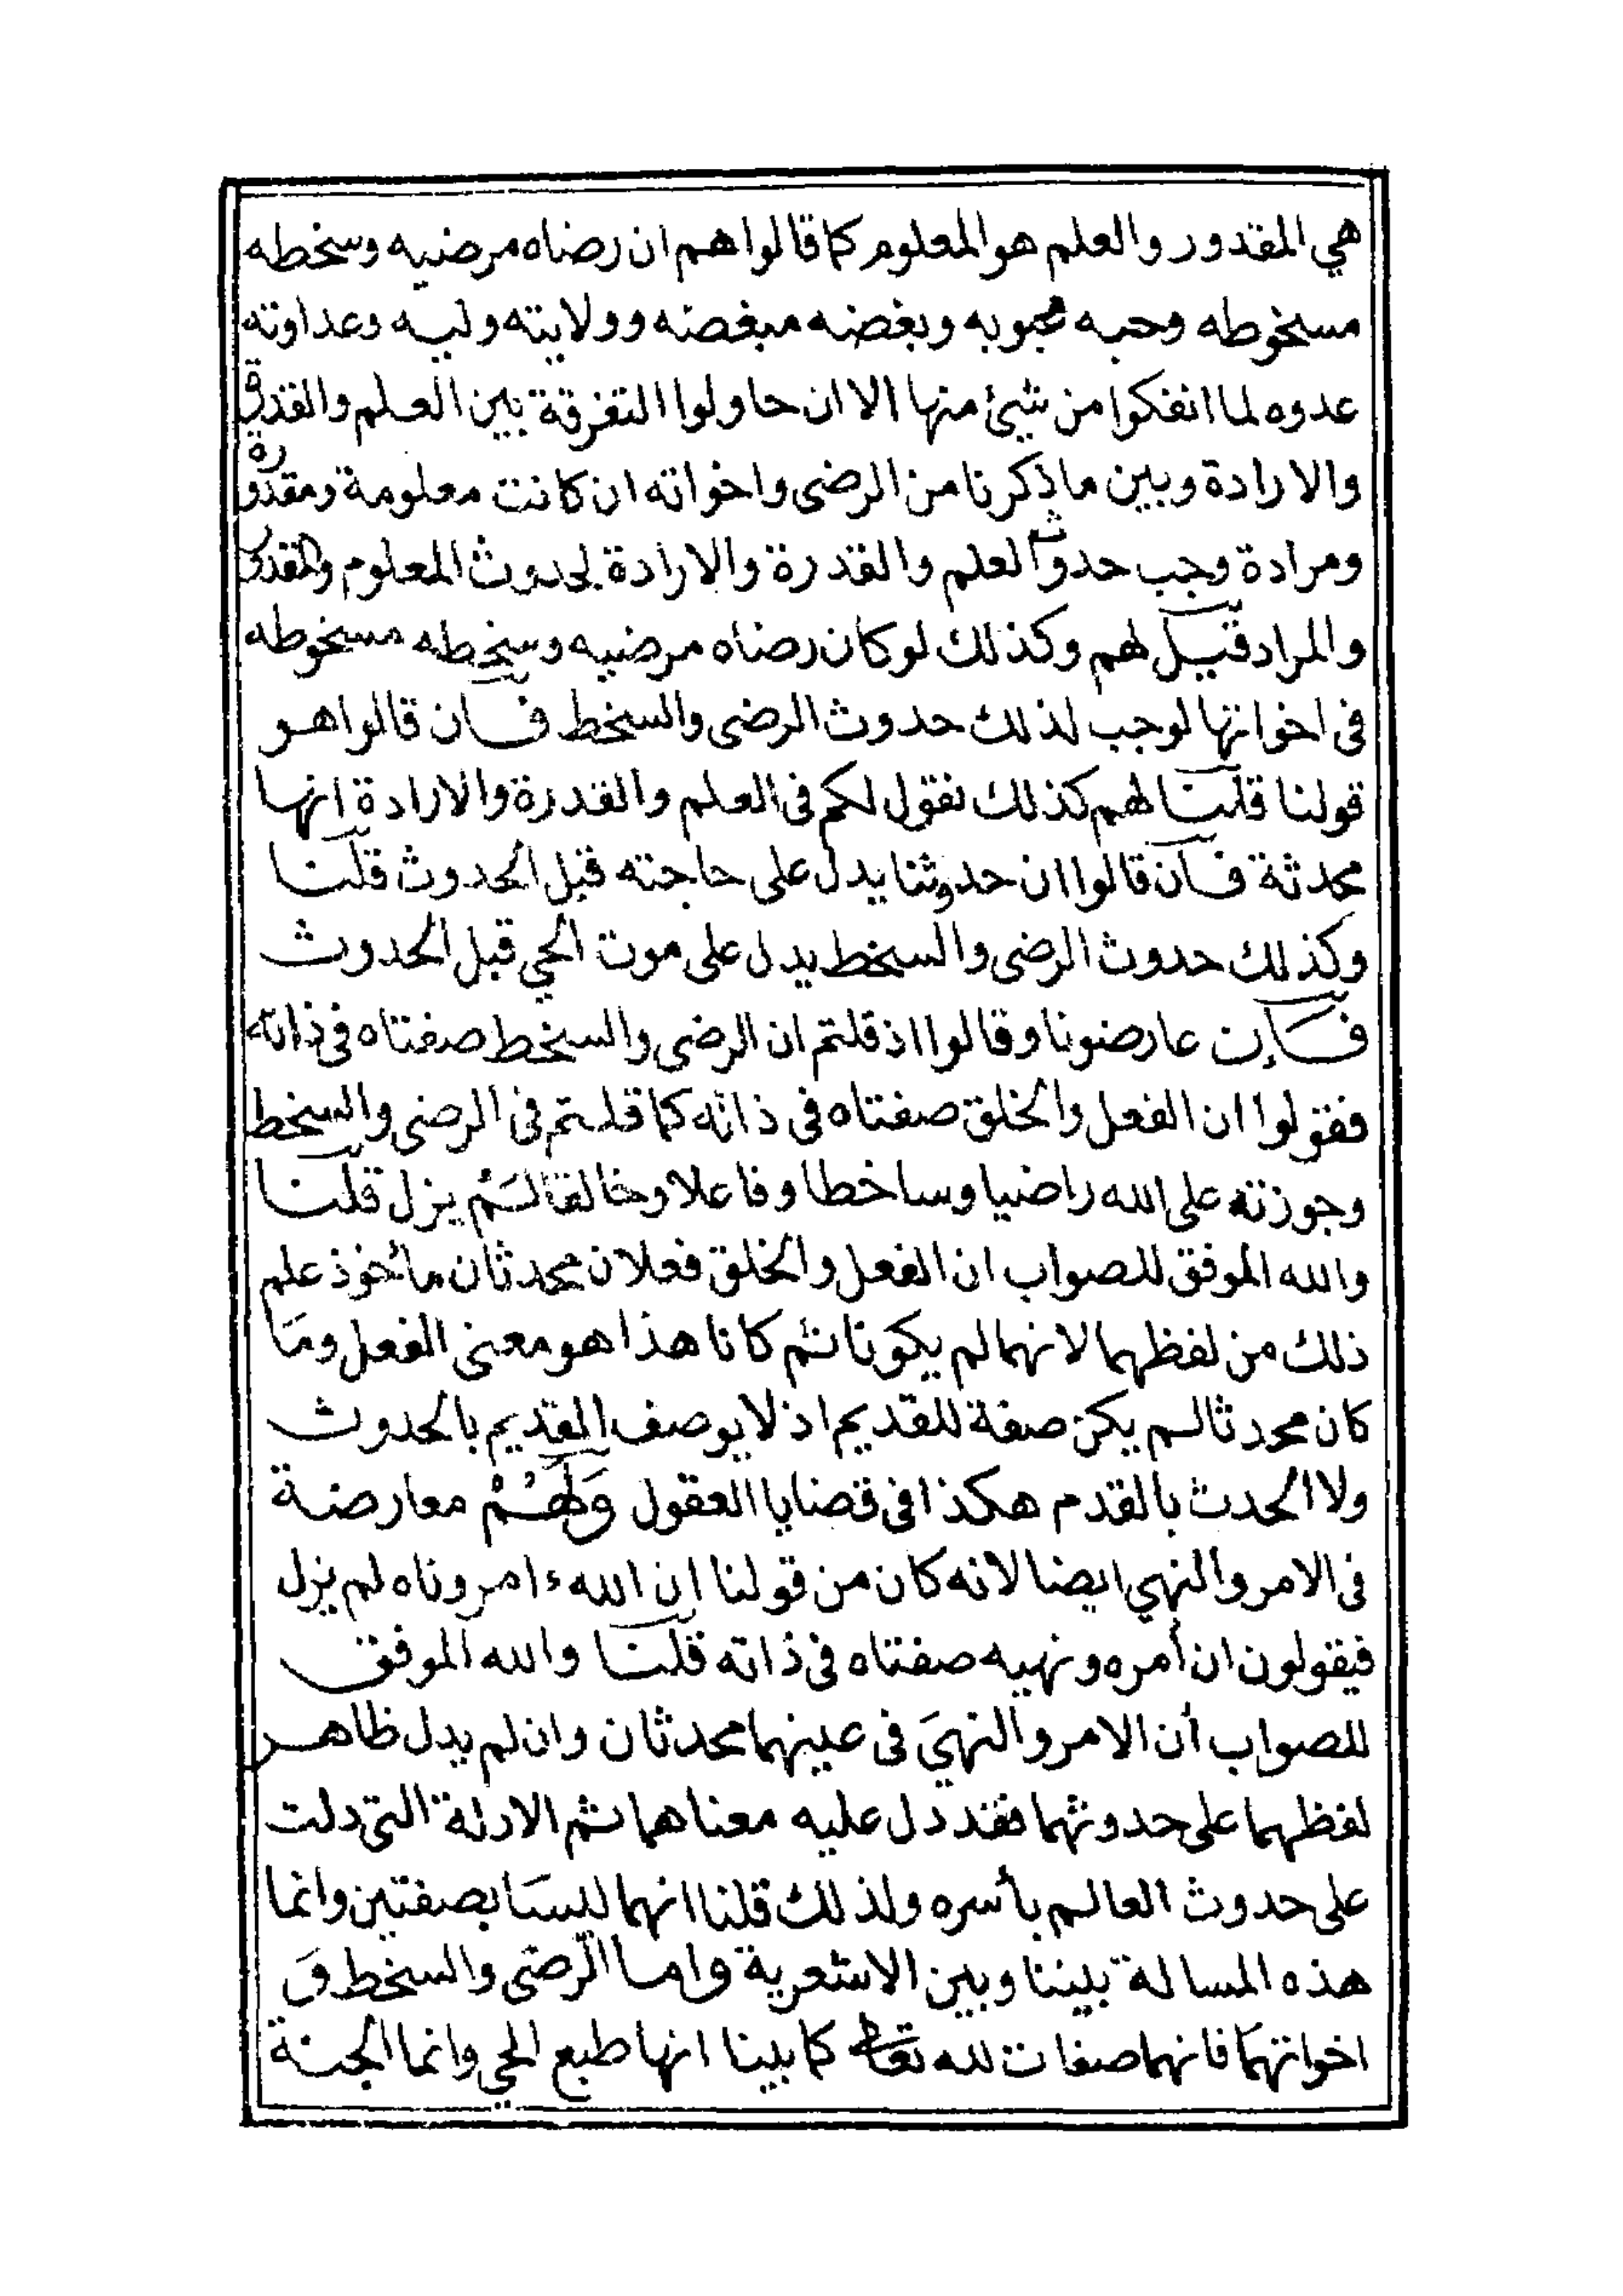 هي المقدور والعلم هو المعلوم كما قالوا هم ان رضاه مرضيه وسخطه
مسخوطه وحبه محبوبه وبغضه مبغضه وولايته وليه وعداوته
عدوه لما انفكوا من شيئ منها الا ان حاولوا التفرقة بين العلم والقدرة
والارادة وبين ما ذكرنا من الرضى واخواته ان كانت معلومة ومقدورة
ومرادة وجب حدوث العلم والقدرة والارادة لحدوث المعلوم والمقدور
والمراد قيل لهم وكذلك لو كان رضاه مرضيه وسخطه مسخوطه
فى اخواتها لوجب لذلك حدوث الرضى والسخط فان قالوا هو
قولنا قلنا لهم كذلك نقول لكم فى العلم والقدرة والارادة انها
محدثة فان قالوا ان حدوثنا يدل على حاجته قبل الحدوث قلنا
وكذلك حدوث الرضى والسخط يدل على موت الحي قبل الحدوث
فإن عارضونا وقالوا اذ قلتم ان الرضى والسخط صفتاه فى ذاته
فقولوا ان الفعل والخلق صفتاه فى ذاته كما قلتم فى الرضى والسخط
وجوزته على الله راضيا وساخطا وفاعلا وخالقا لم يزل قلنا
والله الموفق للصواب ان الفعل والخلق فعلان محدثان مأخوذ علم
ذلك من لفظهما لانهما لم يكونا ثم كانا هذا هو معنى الفعل وما
كان محدثا لم يكن صفة للقديم اذ لا يوصف القديم بالحدوث
ولا الحدث بالقدم هكذا فى قضايا العقول ولهم معارضة
فى الامر والنهي ايضا لانه كان من قولنا ان الله ءامر وناه لم يزل
فيقولون ان أمره ونهيه صفتاه فى ذاته قلنا والله الموفق
للصواب أن الامر والنهيَ فى عينهما محدثان وان لم يدل ظاهر
لفظهما على حدوثهما فقد دل عليه معناهما ثم الادلة التى دلت
على حدوث العالم بأسره ولذلك قلنا انهما ليستا بصفتين وانما
هذه المسالة بيننا وبين الاشعرية واما الرضى والسخط وَ
اخواتهما فانهما صفات لله تعالى كما بينا انها طبع الحي وانما الجنة